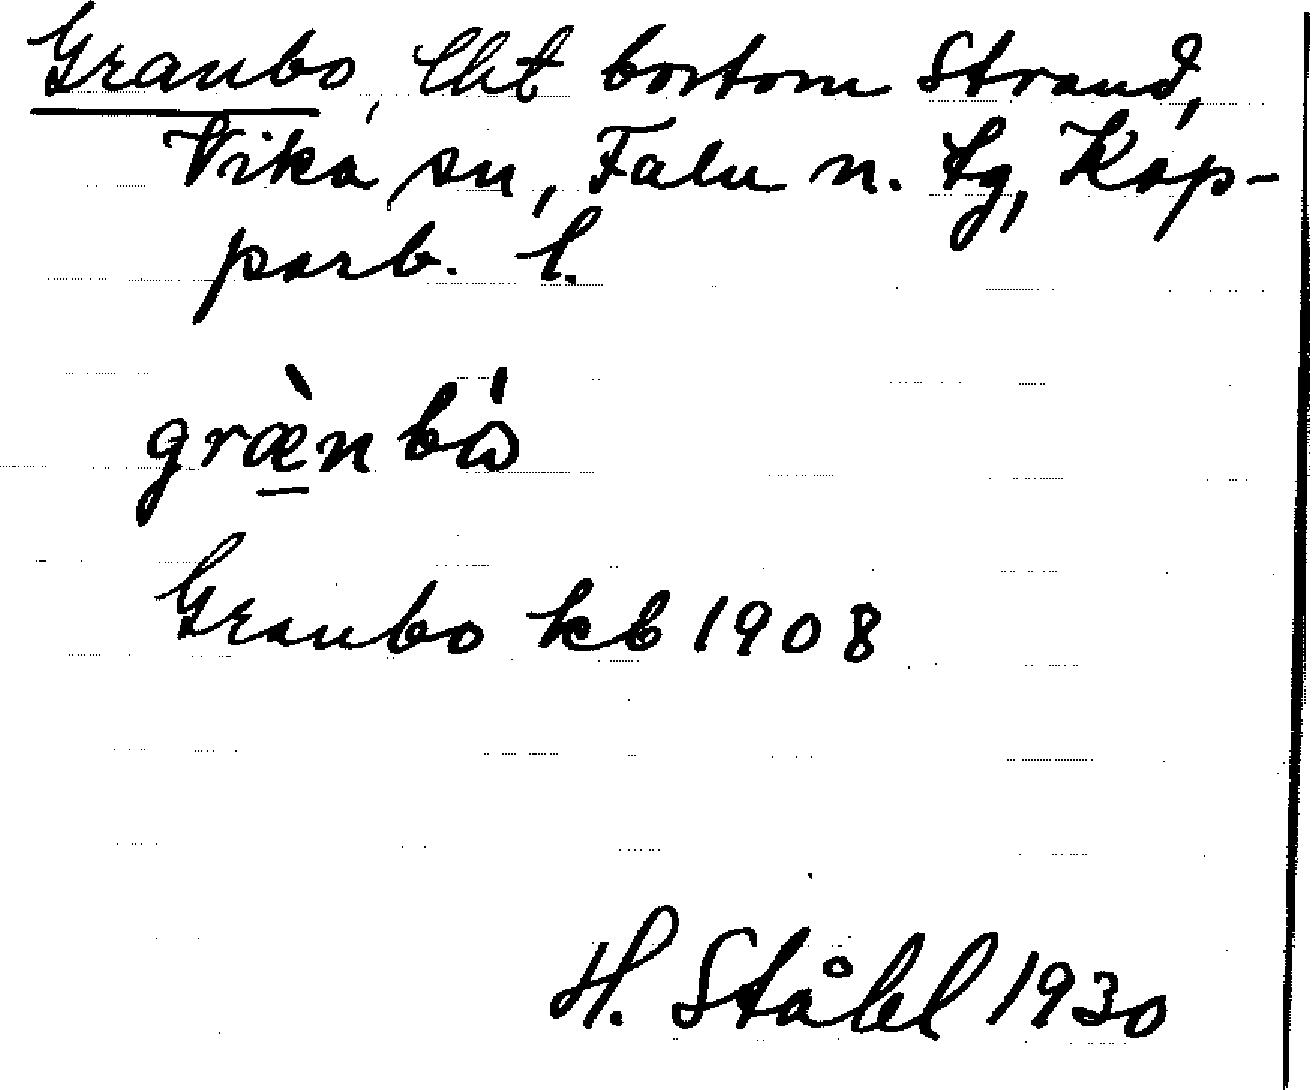 Granbo, lht bortom Strand,
Vika sn, Falu n. tg, Kop-
parb. l.
græ̀nbó
Granbo kb 1908
H. Ståhl 1930